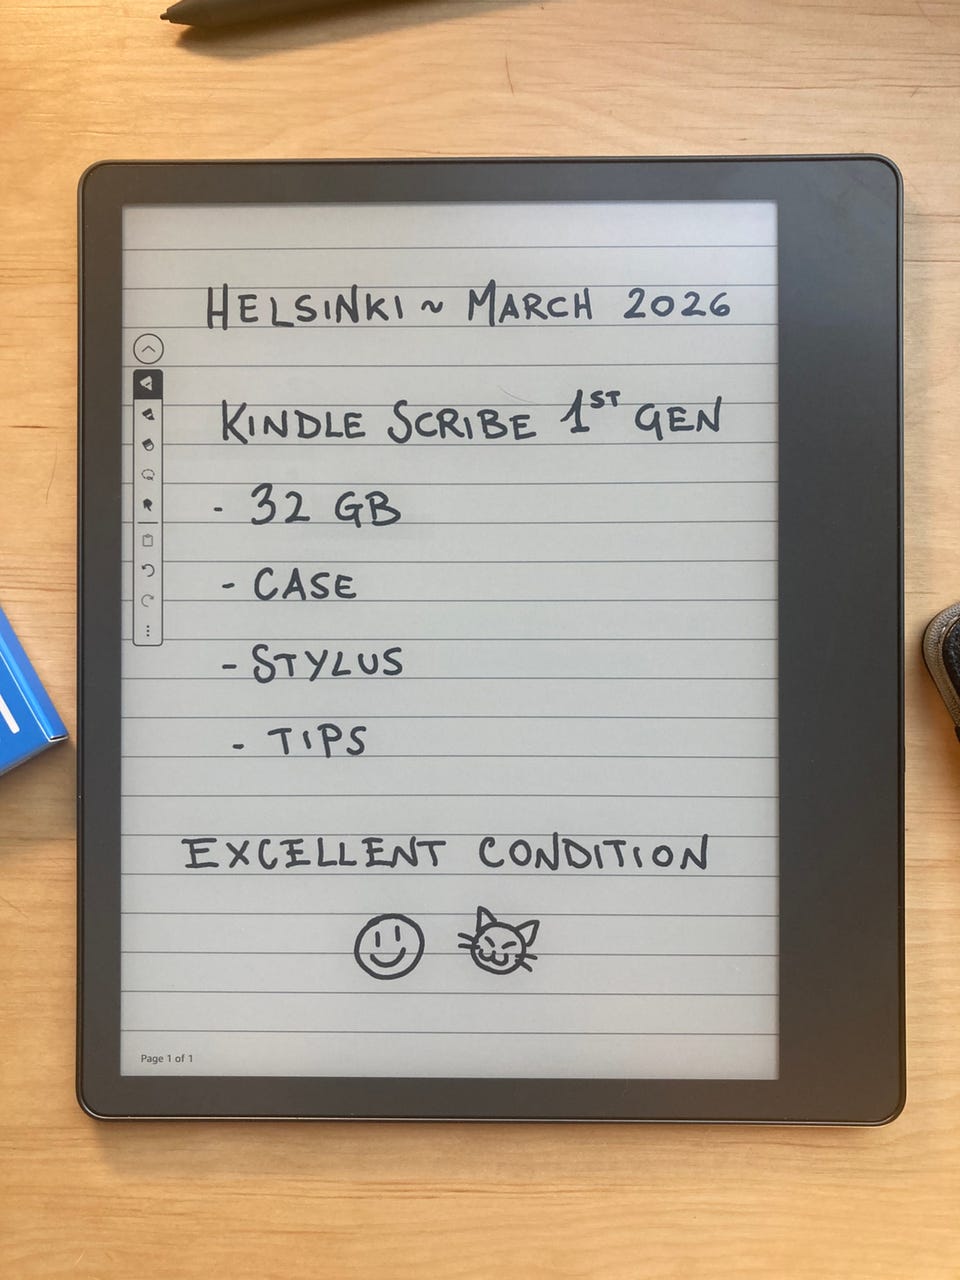 HELSINKI ~ MARCH 2026
KINDLE SCRIBE 1ST GEN
- 32 GB
- CASE
- STYLUS
- TIPS
EXCELLENT CONDITION
Page 1 of 1